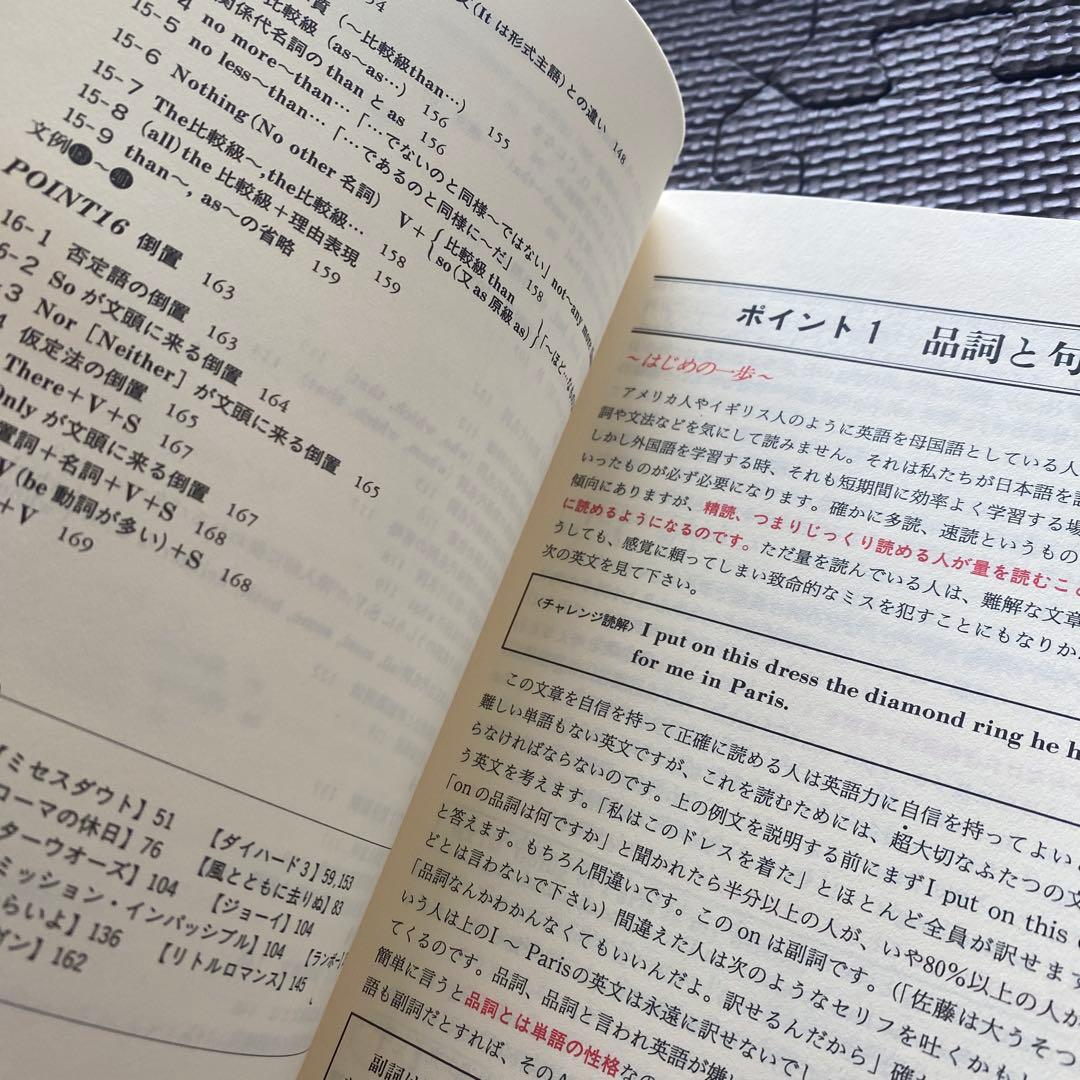 54
文(It は形式主語)との違い 148
質(〜比較級than…) 155
15-4 関係代名詞の than と as 156
15-5 no more〜than…「…でないのと同様〜ではない」not〜any more
no less〜than…「…であるのと同様に〜だ」
15-6 Nothing (No other 名詞) V+{比較級 than so(又 as 原級 as)}「〜ほど…なもの
158
15-7 The比較級〜,the比較級… 158
15-8 (all) the 比較級+理由表現 159
15-9 than〜, as〜の省略 159
文例
POINT16 倒置 163
16-1 否定語の倒置 163
6-2 So が文頭に来る倒置 164
3 Nor [Neither] が文頭に来る倒置 165
4 仮定法の倒置 165
There+V+S 167
Only が文頭に来る倒置 167
置詞+名詞+V+S 168
V(be 動詞が多い)+S 168
+V 169
【ミセスダウト】51 【ダイハード3】59,153
ローマの休日】76 【風とともに去りぬ】83
ターウオーズ】104 【ジョーイ】104
ミッション・インパッシブル】104 【ランボー
らいよ】136 【リトルロマンス】145
ガン】162
ポイント1 品詞と句
〜はじめの一歩〜
アメリカ人やイギリス人のように英語を母国語としている人
詞や文法などを気にして読みません。それは私たちが日本語を
しかし外国語を学習する時、それも短期間に効率よく学習する場
いったものが必ず必要になります。確かに多読、速読というもの
傾向にありますが、精読、つまりじっくり読める人が量を読むこと
に読めるようになるのです。ただ量を読んでいる人は、難解な文章
うしても、感覚に頼ってしまい致命的なミスを犯すことにもなりか
次の英文を見て下さい。
〈チャレンジ読解〉 I put on this dress the diamond ring he h
for me in Paris.
この文章を自信を持って正確に読める人は英語力に自信を持ってよい
難しい単語もない英文ですが、これを読むためには、超大切なふたつの文
らなければならないのです。上の例文を説明する前にまずI put on this
う英文を考えます。「私はこのドレスを着た」とほとんど全員が訳せます
「onの品詞は何ですか」と聞かれたら半分以上の人が、いや80%以上の人が
と答えます。もちろん間違いです。このonは副詞です。(「佐藤は大うそつ
どとは言わないで下さい)間違えた人は次のようなセリフを吐くかも
「品詞なんかわかんなくてもいいんだよ。訳せるんだから」確
いう人は上のI〜Parisの英文は永遠に訳せないでし
てくるのです。品詞、品詞と言われ英語が嫌い
簡単に言うと品詞とは単語の性格なの
語も副詞だとすれば、その
副詞は